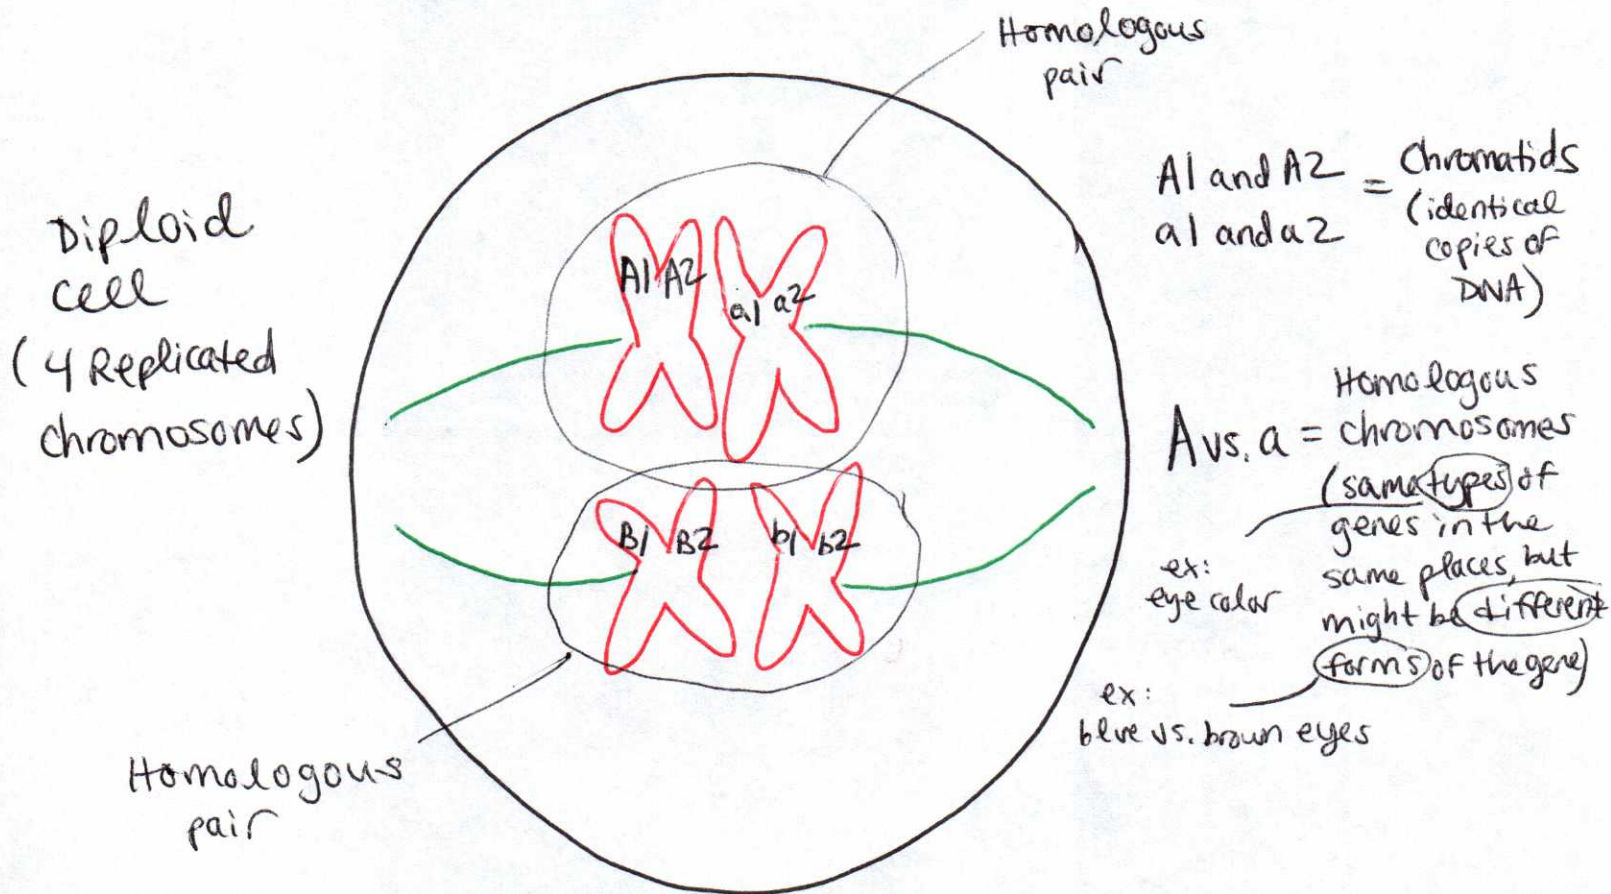 Homologous
pair
Diploid
cell
(4 Replicated
chromosomes)
A1 A2
a1 a2
B1 B2
b1 b2
Homologous
pair
A1 and A2
a1 and a2
= Chromatids
(identical
copies of
DNA)
A vs. a =
Homologous
chromosomes
(same types of
genes in the
same places, but
might be different
forms of the gene)
ex:
eye color
ex:
blue vs. brown eyes